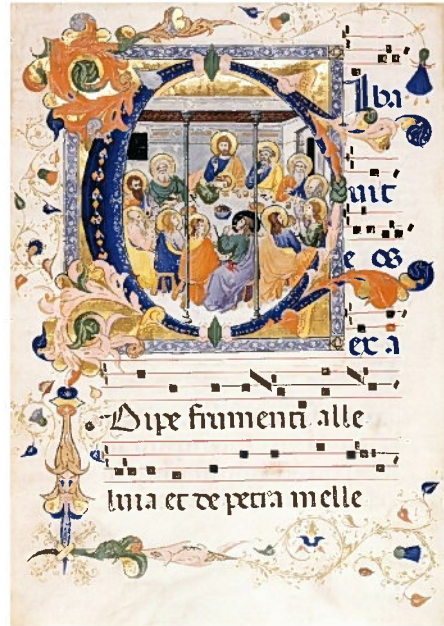 CIba
uit
e os
ex a
Dipe frumenti. alle
luia et de petra melle